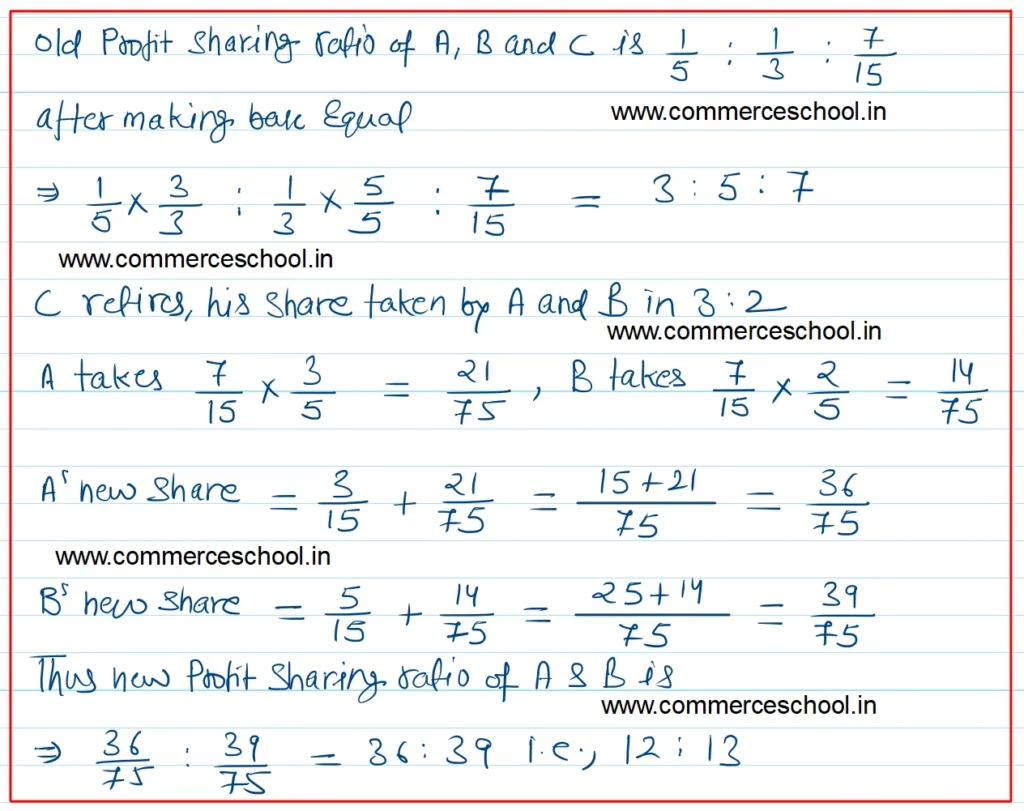 Old Profit sharing ratio of A, B and C is 1/5 : 1/3 : 7/15
after making base Equal
www.commerceschool.in
⇒ 1/5 × 3/3 : 1/3 × 5/5 : 7/15 = 3 : 5 : 7
www.commerceschool.in
C retires, his share taken by A and B in 3 : 2
www.commerceschool.in
A takes 7/15 × 3/5 = 21/75 , B takes 7/15 × 2/5 = 14/75
A's new share = 3/15 + 21/75 = 15+21/75 = 36/75
www.commerceschool.in
B's new share = 5/15 + 14/75 = 25+14/75 = 39/75
Thus new Profit sharing ratio of A & B is
www.commerceschool.in
⇒ 36/75 : 39/75 = 36 : 39 i.e., 12 : 13